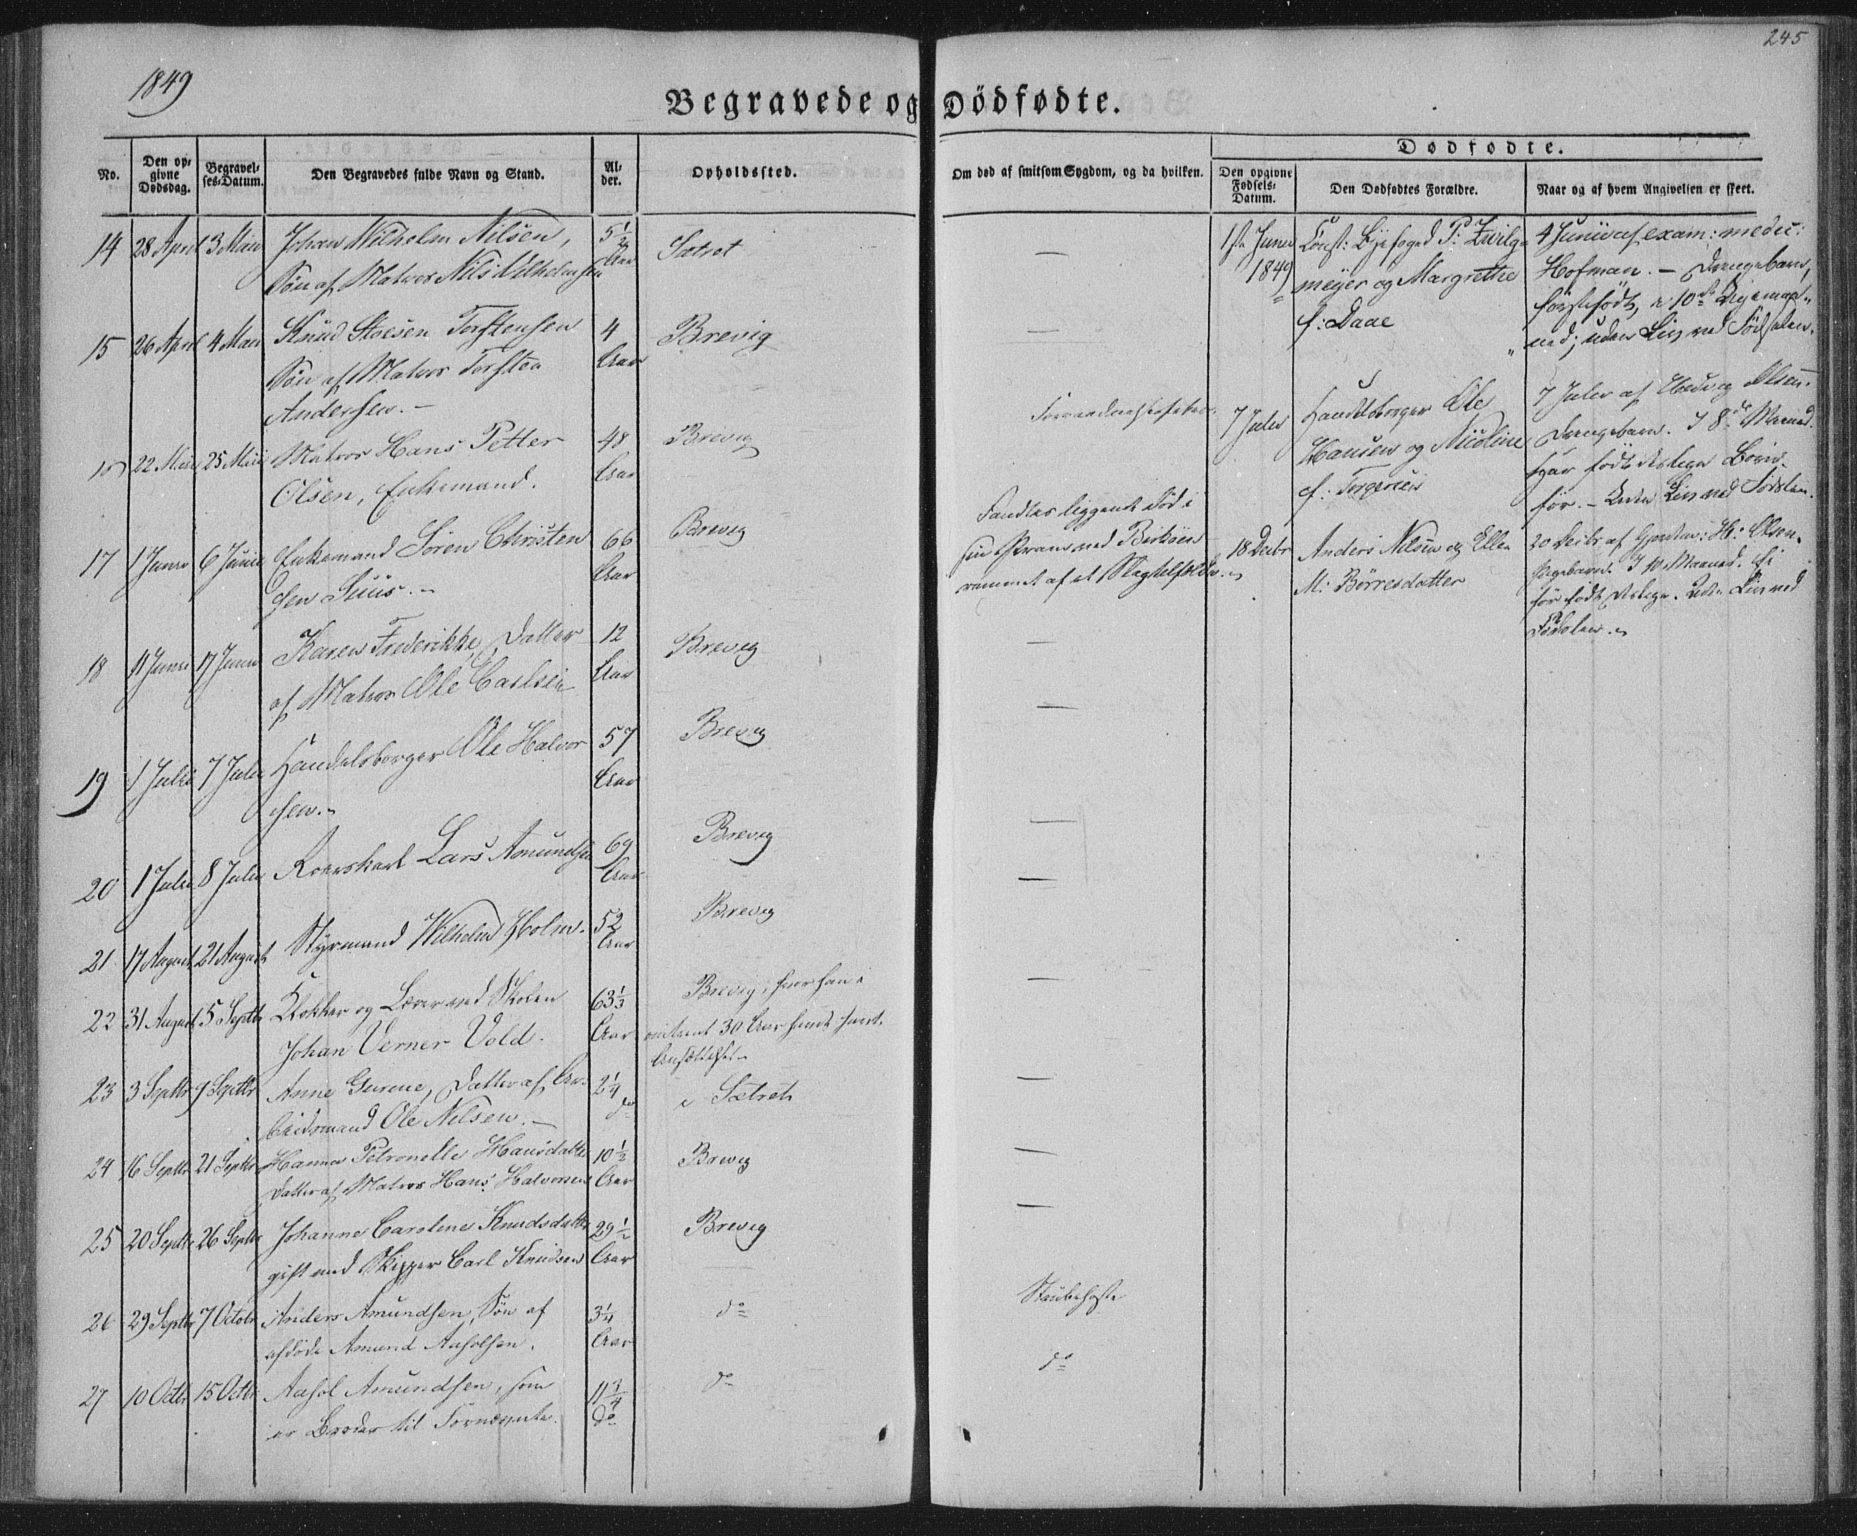 245
1849
Begravede og Dödfødte.
No.
Den opgivne Dødsdag.
Begravelses-Datum.
Den Begravedes fulde Navn og Stand.
Alder.
Opholdssted.
Om død af smitsom Sygdom, og da hvilken.
Dødfødte.
Den opgivne Fødsels-Datum.
Den Dødfødtes Forældre.
Naar og af hvem Angivelsen er skeet.
14 28 April 3 Maii Johan Wilhelm Nilsen, 5½ Aar Sætret —
Søn af Matros Nils Wilhelmsen
15 26 April 4 Maii Knud Stoesen Torstensen 4 Aar Brevig —
Søn af Matros Torsten
Andersen. —
16 22 Maii 25 Maii Matros Hans Petter 48 Aar Brevig
Olsen, Enkemand.
17 1 Junii 6 Junii Enkemand Sören Christen 66 Aar Brevig
sen Suus.
Fandtes liggende død i
sin Pram ved
rammet af et Slagtilfælde.
18 11 Junii 17 Junii Karen Frederikke, Datter 12 Aar Brevig —
af Matros Ole Carlsen
19 1 Julii 7 Julii Handelsborger Ole Halvor 57 Aar Brevig —
sen.
20 1 Julii 8 Julii Roerskarl Lars Amundsen 69 Aar Brevig —
21 17 August 21 August Styrmand Wilhelm Holm. 52 Aar Brevig —
22 31 August 5 Septbr Klokker og Lærer ved Skolen 63⅓ Aar Brevig, hvor han i —
Johan Verner Vold. omtrent 30 Aar havde havt
Ansættelse.
23 3 Septbr 9 Septbr Anne Gurine, Datter af Ar- 2¼ do Sætret
beidsmand Ole Nilsen. —
24 16 Septbr 21 Septbr Hanna Petronelle Hansdatter 10½ Aar Brevig —
Datter af Matros Hans Halvorsen
25 20 Septbr 26 Septbr Johanne Caroline Knudsdatter 29½ Aar Brevig —
gift med Skipper Carl Knudsen
26 29 Septbr 7 Octobr Anders Amundsen, Søn af 3¼ Aar do Strubehoste
afdøde Amund Aasolsen.
27 10 Octbr 15 Octbr Aasol Amundsen, som 11¾ do do do
er Broder til Fornævnte.
1ste Junii 1849
Const: Byefoged P: Zwilg-
meyer og Margrethe
f: Daae
4 Junii af exam: medic:
Hofman. — Drengebarn,
førstefødt, i 10de
uden Liv ved Fødselen.
7 Julii
Handelsborger Ole
Hansen og Nicoline
f: Torgersen
7 Julii af Hedvig Olsen.
Drengebarn. I 8de Maaned.
Har født Børn
før. — Uden Liv ved Fødslen.
18 Decbr
Anders Nilsen og Ellen
M: Börresdatter
20 Decbr af H: Olsen.
Pigebarn. I 10 Maaned. Ei
før født Uden Liv ved
Fødslen.